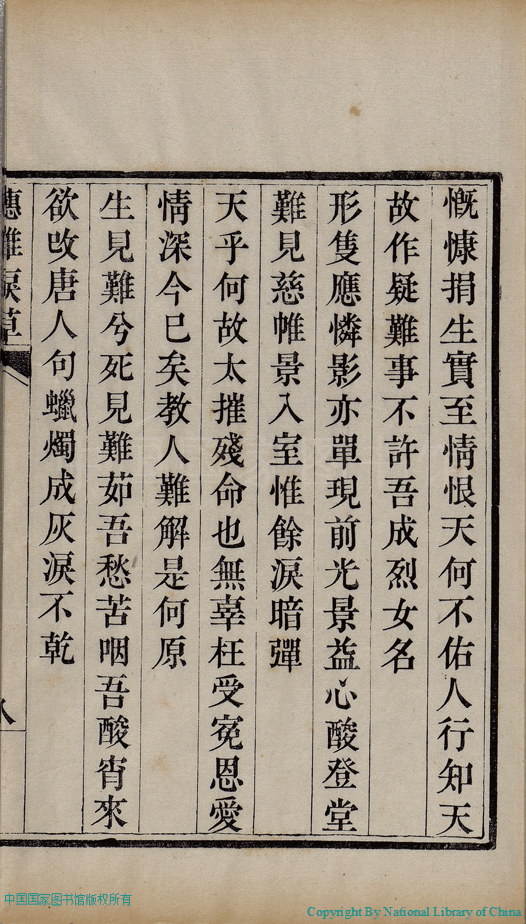 慨慷捐生實至情恨天何不佑人行知天
故作疑難事不許吾成烈女名
形隻應憐影亦單現前光景益心酸登堂
難見慈帷景入室惟餘淚暗彈
天乎何故太摧殘命也無辜枉受冤恩愛
情深今已矣教人難解是何原
生見難兮死見難茹吾愁苦咽吾酸宵來
欲改唐人句蠟燭成灰淚不乾
穗帷淚草
八
中国国家图书馆版权所有
Copyright By National Library of China